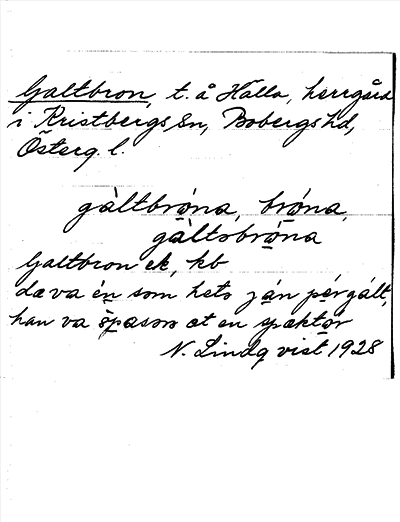 Galtbron, t. å Halla, herrgård
i Kristbergs sn, Bobergs hd,
Österg. l.
gàltbrǫ́na, brǫ́na,
gàltsbrǫna
Galtbron ek, kb
dæ va én som hets ján pérgált,
han va spasər åt en spæktór
N. Lindqvist 1928